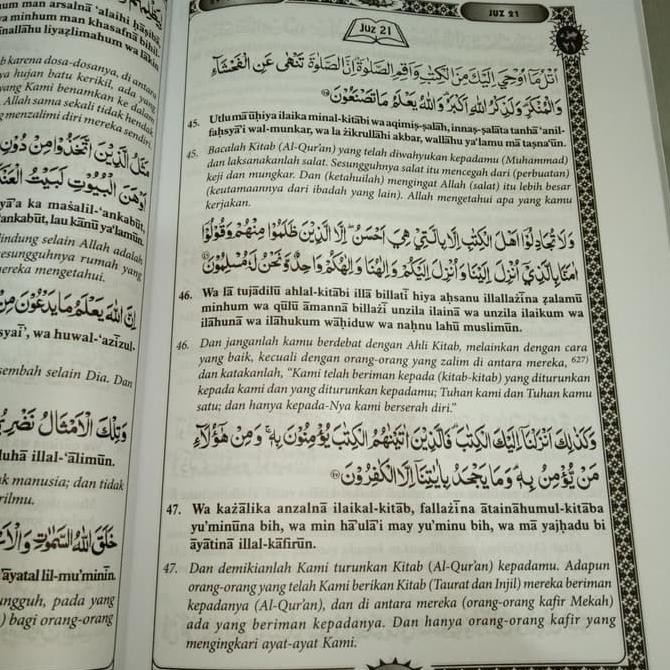 um man arsalnā 'alaihi ḥāṣiban
wa minhum man khasafnā bihil-
nallāhu liyaẓlimahum wa lākin
b karena dosa-dosanya, di antara
ya hujan batu kerikil, ada yang
yang Kami benamkan ke dalam
. Allah sama sekali tidak hendak
menzalimi diri mereka sendiri.
مَثَلُ الَّذِيْنَ اتَّخَذُوْا مِنْ دُوْنِ
اَوْهَنَ الْبُيُوْتِ لَبَيْتُ الْعَنْكَ
yā'a ka maṡalil-'ankabūt,
'ankabūt, lau kānū ya'lamūn.
lindung selain Allah adalah
sesungguhnya rumah yang
ereka mengetahui.
اِنَّ اللّٰهَ يَعْلَمُ مَا يَدْعُوْنَ مِنْ
syai', wa huwal-'azīzul-
sembah selain Dia. Dan
وَتِلْكَ الْاَمْثَالُ نَضْرِبُ
luhā illal-'ālimūn.
k manusia; dan tidak
rilmu.
خَلَقَ اللّٰهُ السَّمٰوٰتِ وَالْاَ
'āyatal lil-mu'minīn.
ungguh, pada yang
) bagi orang-orang
JUZ 21
JUZ 21
اُتْلُ مَآ اُوْحِيَ اِلَيْكَ مِنَ الْكِتٰبِ وَاَقِمِ الصَّلٰوةَۗ اِنَّ الصَّلٰوةَ تَنْهٰى عَنِ الْفَحْشَاۤءِ
وَالْمُنْكَرِۗ وَلَذِكْرُ اللّٰهِ اَكْبَرُۗ وَاللّٰهُ يَعْلَمُ مَا تَصْنَعُوْنَ ۝٤٥
45. Utlu mā ūḥiya ilaika minal-kitābi wa aqimiṣ-ṣalāh, innaṣ-ṣalāta tanhā 'anil-
faḥsyā'i wal-munkar, wa la żikrullāhi akbar, wallāhu ya'lamu mā taṣna'ūn.
45. Bacalah Kitab (Al-Qur'an) yang telah diwahyukan kepadamu (Muhammad)
dan laksanakanlah salat. Sesungguhnya salat itu mencegah dari (perbuatan)
keji dan mungkar. Dan (ketahuilah) mengingat Allah (salat) itu lebih besar
(keutamaannya dari ibadah yang lain). Allah mengetahui apa yang kamu
kerjakan.
وَلَا تُجَادِلُوْٓا اَهْلَ الْكِتٰبِ اِلَّا بِالَّتِيْ هِيَ اَحْسَنُۖ اِلَّا الَّذِيْنَ ظَلَمُوْا مِنْهُمْ وَقُوْلُوْٓا
اٰمَنَّا بِالَّذِيْٓ اُنْزِلَ اِلَيْنَا وَاُنْزِلَ اِلَيْكُمْ وَاِلٰهُنَا وَاِلٰهُكُمْ وَاحِدٌ وَّنَحْنُ لَهٗ مُسْلِمُوْنَ ۝٤٦
46. Wa lā tujādilū ahlal-kitābi illā billatī hiya aḥsanu illallażīna ẓalamū
minhum wa qūlū āmannā billażī unzila ilainā wa unzila ilaikum wa
ilāhunā wa ilāhukum wāḥiduw wa naḥnu lahū muslimūn.
46. Dan janganlah kamu berdebat dengan Ahli Kitab, melainkan dengan cara
yang baik, kecuali dengan orang-orang yang zalim di antara mereka, 627)
dan katakanlah, "Kami telah beriman kepada (kitab-kitab) yang diturunkan
kepada kami dan yang diturunkan kepadamu; Tuhan kami dan Tuhan kamu
satu; dan hanya kepada-Nya kami berserah diri."
وَكَذٰلِكَ اَنْزَلْنَآ اِلَيْكَ الْكِتٰبَۗ فَالَّذِيْنَ اٰتَيْنٰهُمُ الْكِتٰبَ يُؤْمِنُوْنَ بِهٖۚ وَمِنْ هٰٓؤُلَاۤءِ
مَنْ يُّؤْمِنُ بِهٖۗ وَمَا يَجْحَدُ بِاٰيٰتِنَآ اِلَّا الْكٰفِرُوْنَ ۝٤٧
47. Wa każālika anzalnā ilaikal-kitāb, fallażīna ātaināhumul-kitāba
yu'minūna bih, wa min hā'ulā'i may yu'minu bih, wa mā yajḥadu bi
āyātinā illal-kāfirūn.
47. Dan demikianlah Kami turunkan Kitab (Al-Qur'an) kepadamu. Adapun
orang-orang yang telah Kami berikan Kitab (Taurat dan Injil) mereka beriman
kepadanya (Al-Qur'an), dan di antara mereka (orang-orang kafir Mekah)
ada yang beriman kepadanya. Dan hanya orang-orang kafir yang
mengingkari ayat-ayat Kami.